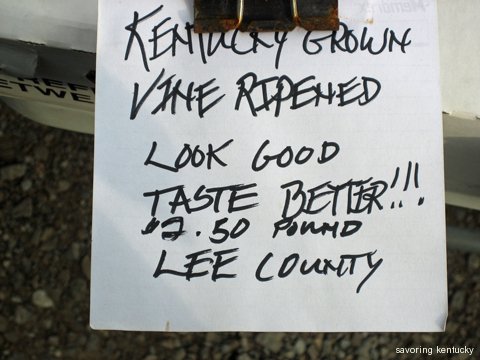 KENTUCKY GROWN
VINE RIPENED
LOOK GOOD
TASTE BETTER!!!
$2.50 POUND
LEE COUNTY
savoring kentucky